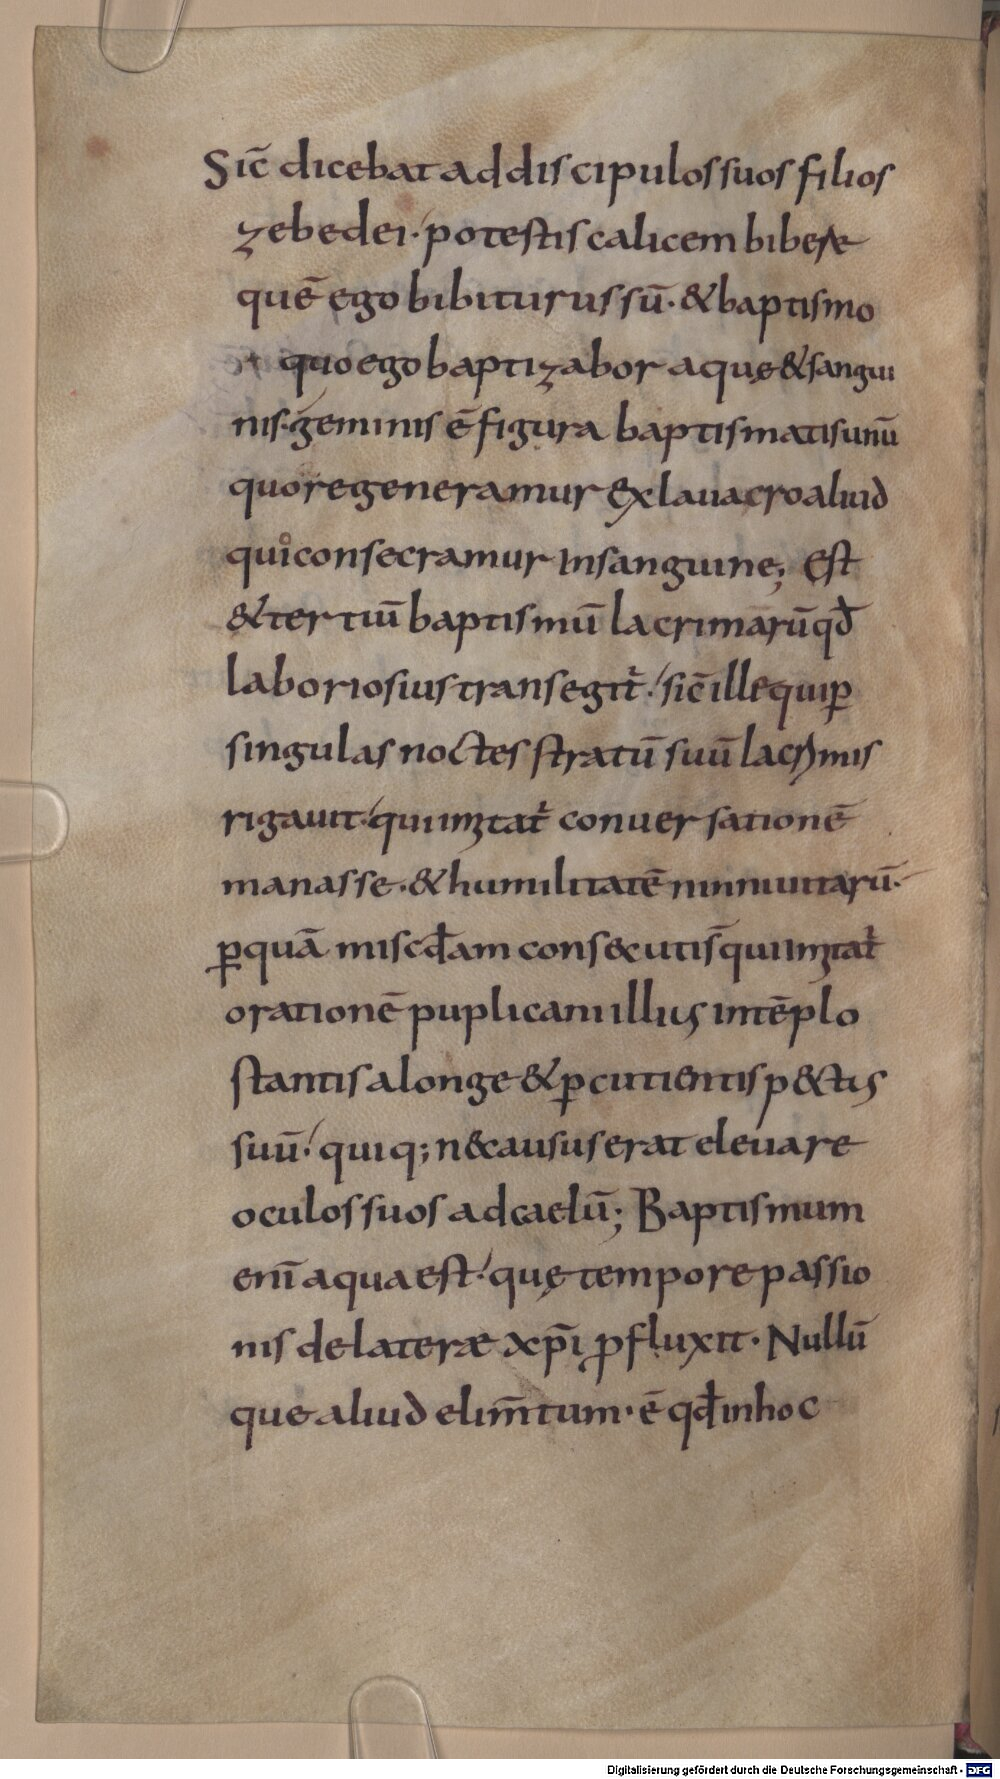 Sic̄ dicebat ad discipulos suos filios
zebedei· potestis calicem bibere
quē ego bibiturus sū· & baptismo
quo ego baptizabor aquę & sangui
nis· geminis ē figura baptismatis unū
quo regeneramur ex lauacro aliud
quo consecramur In sanguine; Est
& tertiū baptismū lacrimarū qđ
laboriosius transegit̄· sic̄ ille qui ꝑ
singulas noctes stratū suū lacrymis
rigauit· qui imitat̄ conuersationē
manasse· & humilitatē niniuitarū·
ꝑ quā miscđam consecuti s̄ qui imitat̄
orationē puplicani illius in tēplo
stantis alonge & ꝑcutientis pectus
suū· quiq; nec ausus erat eleuare
oculos suos ad caelū; Baptismum
enī aqua est· quę tempore passio
nis de laterae xp̄i ꝓfluxit· Nullū
que aliud elim̄tum· ē qđ in hoc
Digitalisierung gefördert durch die Deutsche Forschungsgemeinschaft - DFG